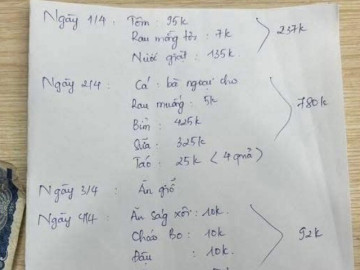 Ngày 1/4 : Tôm : 95k
Rau mồng tơi : 7k
Nước giặt : 135k
237k
Ngày 2/4 : Cá : bà ngoại cho
Rau muống : 5k
Bỉm : 425k
Sữa : 325k
Táo : 25k ( 4 quả )
780k
Ngày 3/4 : Ăn giỗ
Ngày 4/4 : Ăn sáng xôi : 10k
Cháo Bo : 10k
Đậu : 10k
92k